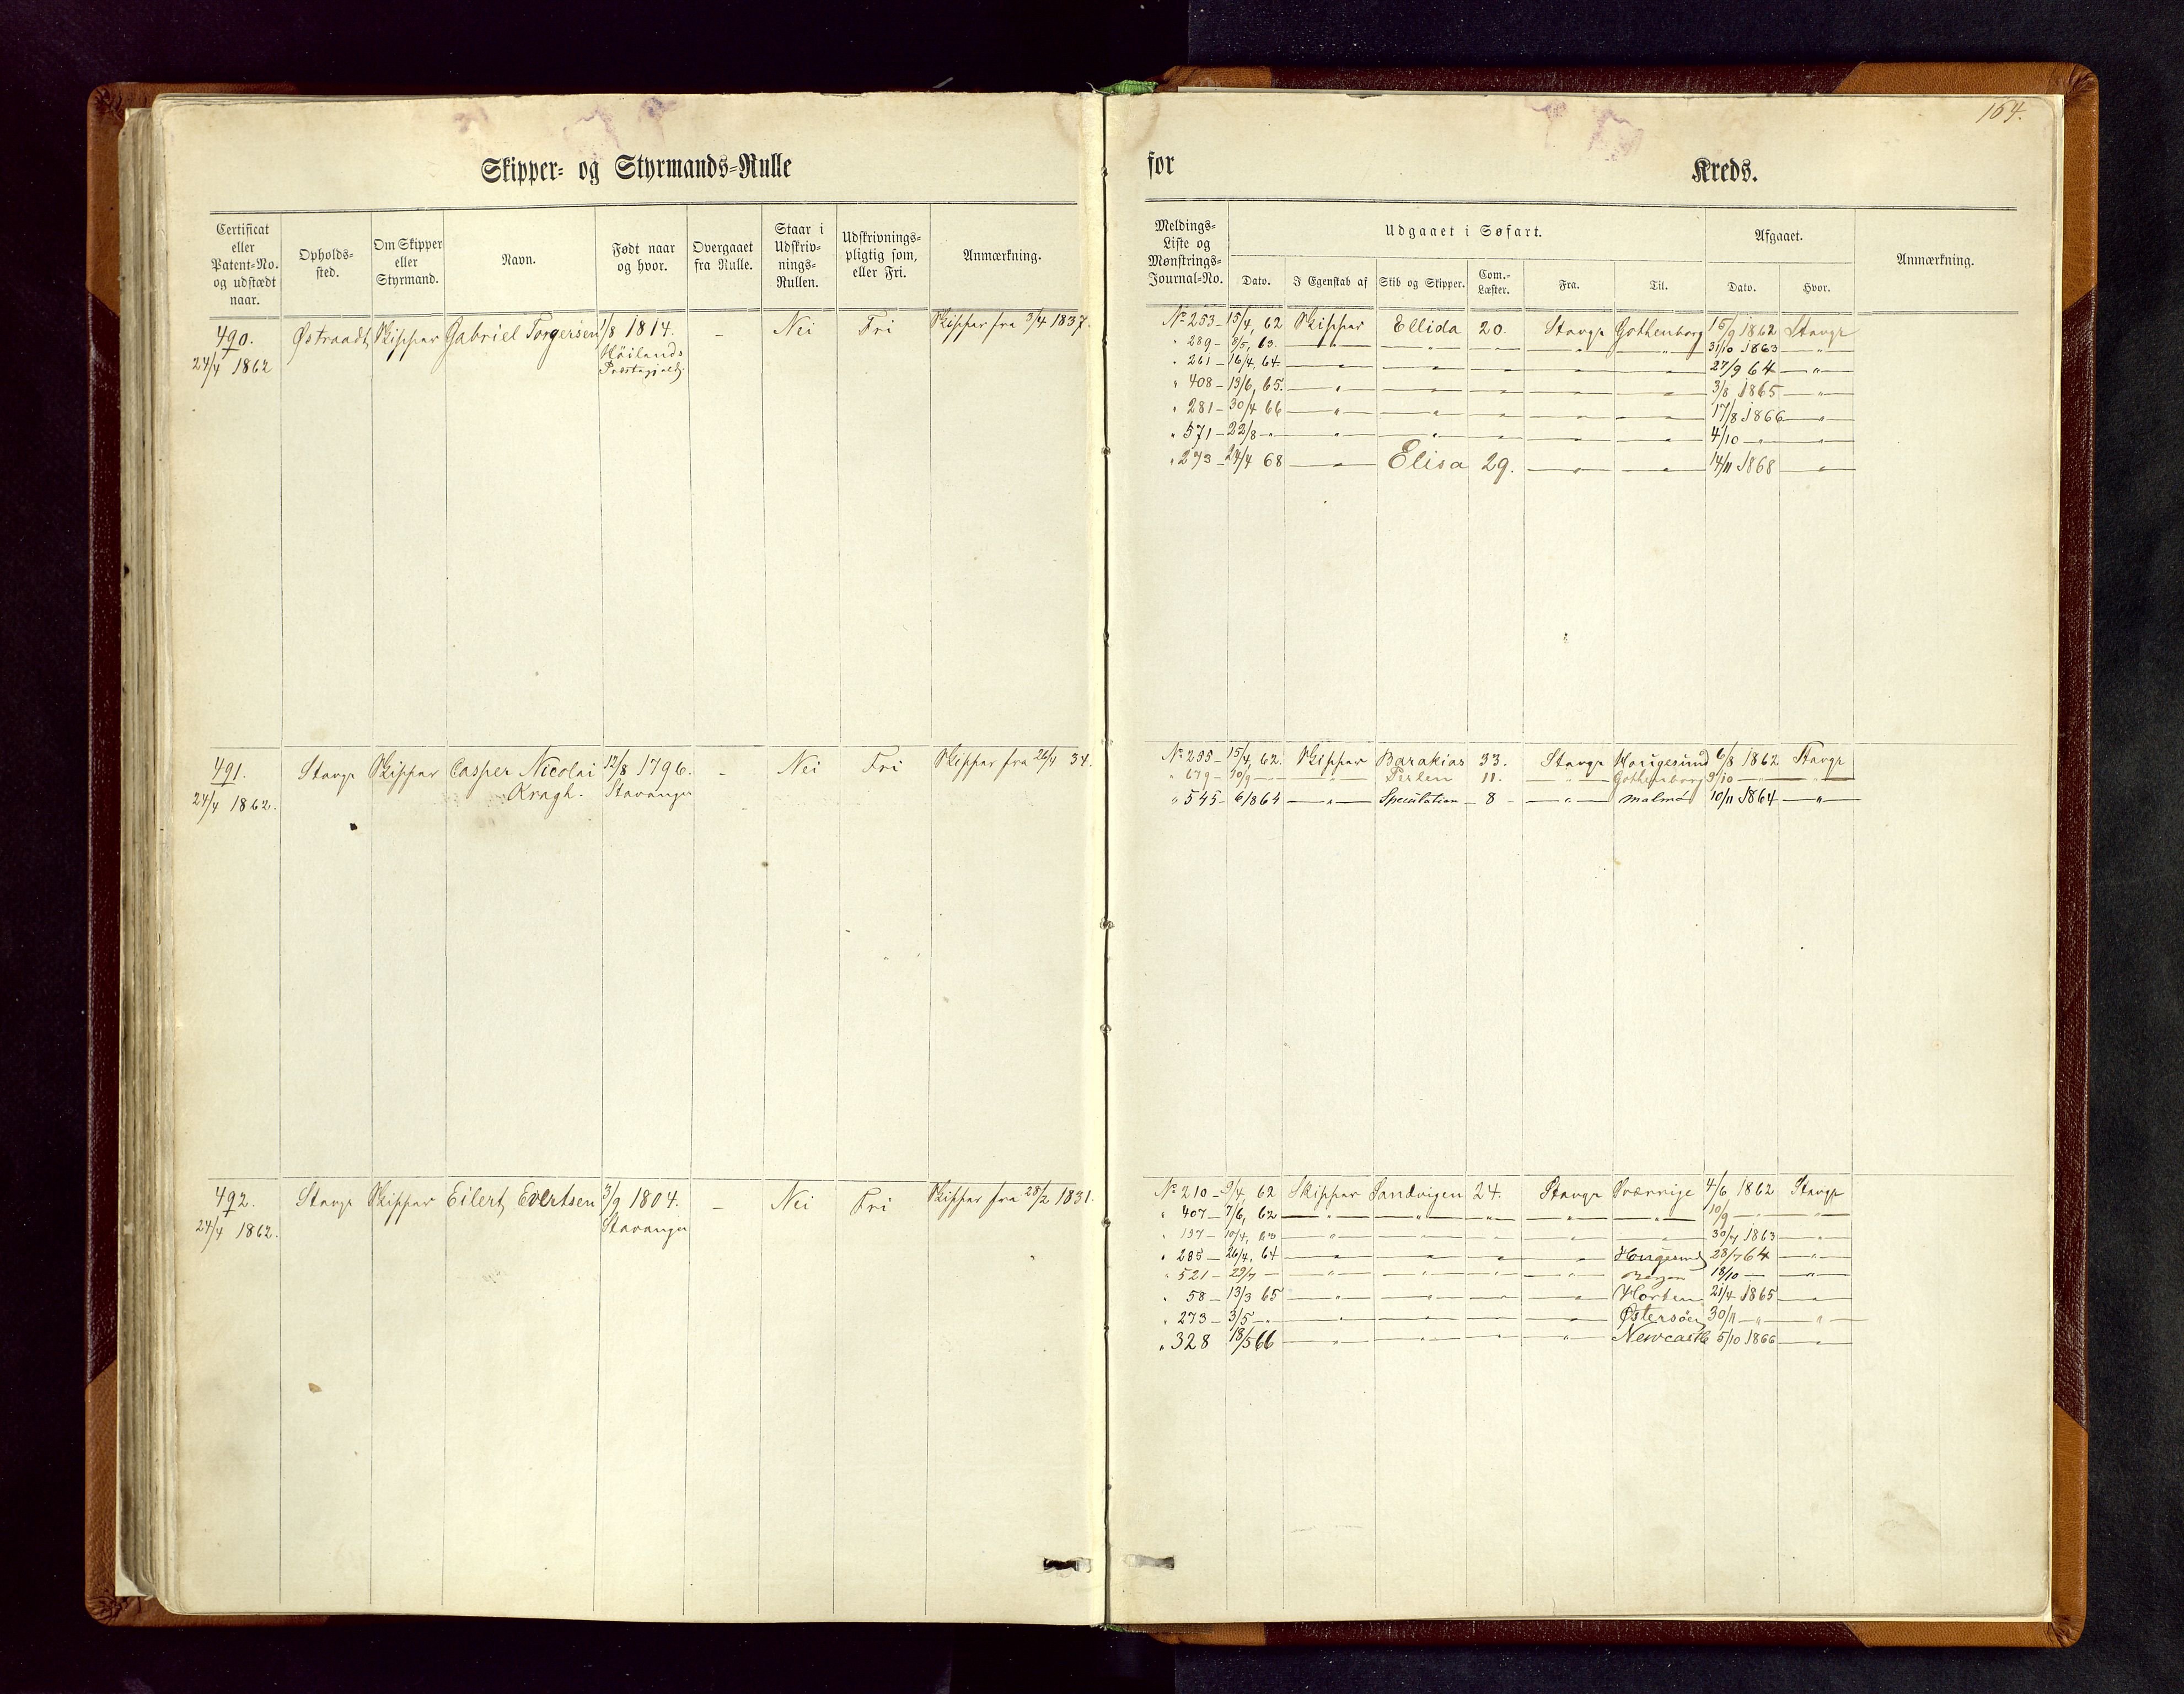 164.
Skipper- og Styrmands-Rulle for Kreds.
Certificat eller Patent-No. og udstædt naar. Opholds-sted. Om Skipper eller Styrmand. Navn. Født naar og hvor. Overgaaet fra Rulle. Staar i Udskriv-nings-Rullen. Udskrivnings-pligtig som, eller Fri. Anmærkning.
Meldings-Liste og Mønstrings-Journal-No. Udgaaet i Søfart. Afgaaet. Anmærkning.
Dato. I Egenskab af Skib og Skipper. Com.-Læster. Fra. Til. Dato. Hvor.
490. Østraadt Skipper Gabriel Torgersen 1/8 1814. - Nei Fri Skipper fra 3/4 1837.
24/4 1862 Höilands
Præstegjeld.
No 253 - 15/4, 62 Skipper Ellida 20. Stavgr Gothenborg 15/9 1862 Stavgr
" 289 - 8/5, 63. — " — " — " — " — " 31/10 1863 — " —
" 261 - 16/4, 64. — " — " — " — " — " 27/9 64 — " —
" 408 - 13/6, 65. — " — " — " — " — " 3/8 1865 — " —
" 281 - 30/4 66 — " — " — " — " — " 17/8 1866 — " —
" 571 - 22/8 - " — " — " — " — " — " 4/10 — " — " —
" 273 - 24/4 68 — " — Elisa 29. — " — " — 14/11 1868 — " —
491. Stavgr Skipper Casper Nicolai 12/8 1796. - Nei Fri Skipper fra 26/4 34.
24/4 1862. Kragh. Stavanger
No 255 - 15/4, 62. Skipper Barakias 33. Stavgr Haugesund 6/8 1862 Stavgr
" 679 - 10/9 - — " — Perlen 11. — " — Gothenborg 9/10 — " —
" 545 - 6/864 — " — Speculation - 8 - — " — Malmö 10/11 1864 — " —
492. Stavgr Skipper Eilert Evertsen 3/9 1804. - Nei Fri Skipper fra 28/2 1831.
24/4 1862. Stavanger
No 210 - 9/4, 62 Skipper Sandvigen 24. Stavgr Sverrige 4/6 1862 Stavgr
" 407 - 7/6, 62 — " — " — " — " — " — 10/9 — " — " —
" 197 - 10/4, — " — " — " — " — " — 30/7 1863 — " —
" 285 - 26/4, 64 — " — " — " — " — Haugesund 28/7 64 — " —
" 521 - 29/7 — — " — " — " — " — Bergen 18/10 — — " —
" 58 - 13/3 65 — " — " — " — " — Horten 21/4 1865 — " —
" 273 - 3/5 - " — " — " — " — " — Østersöen 30/11 — " — " —
" 328 18/5 66 — " — " — " — " — Newcastle 5/10 1866 — " —